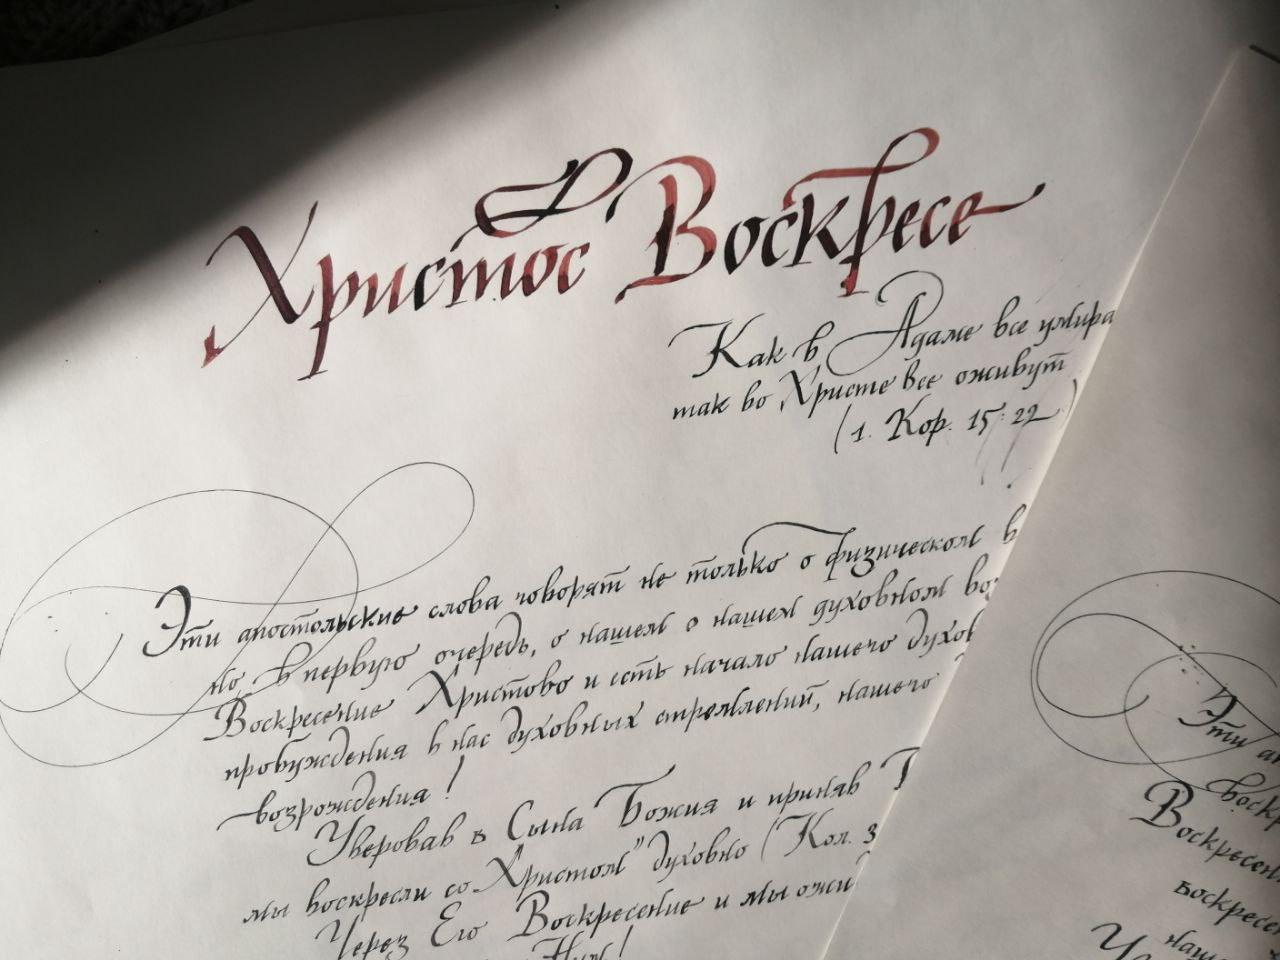 Христос Воскресе
Как в Адаме все умира
так во Христе все оживут
(1. Кор. 15:22)
Эти апостольские слова говорят не только о физическом в
но в первую очередь, о нашем о нашем духовном во
Воскресение Христово и есть начало нашего духов
пробуждения в нас духовных стремлений, нашего
возрождения!
Уверовав в Сына Божия и приняв
мы воскресли со Христом" духовно (Кол. 3
Через Его Воскресение и мы ожи
Ним!
Эти
Воскресен
воскресе
наш